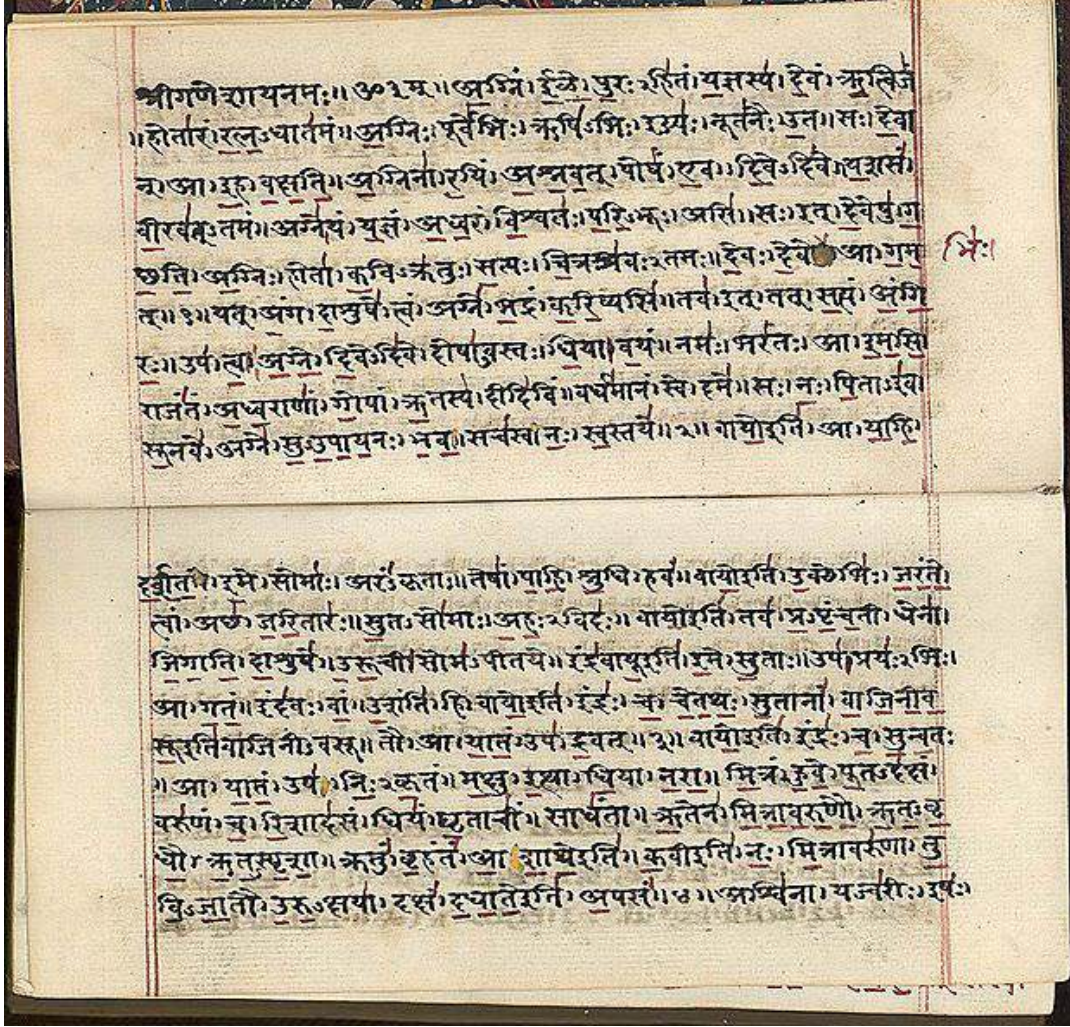 श्रीगणेशायनमः॥ॐ३म्॥अग्निं।ईळे।पुरःऽहितं।यज्ञस्य।देवं।ऋत्विजं
॥होतारं।रत्नऽधातमं॥अग्निः।पूर्वेभिः।ऋषिऽभिः।ईड्यः।नूतनैः।उत॥सः।देवा
न्।आ।इह।वक्षति॥अग्निना।रयिं।अश्नवत्।पोषं।एव।दिवेऽदिवे॥यशसं।
वीरवत्ऽतमं॥अग्ने।यं।यज्ञं।अध्वरं।विश्वतः।परिऽभूः।असि॥सः।इत्।देवेषु।ग
छति।अग्निः।होता।कविऽक्रतुः।सत्यः।चित्रश्रवःऽतमः॥देवः।देवे आ।गम
भिः।
त्॥१॥यत्।अंग।दाशुषे।त्वं।अग्ने।भद्रं।करिष्यसि॥तव।इत्।तत्।सत्यं।अंगि
रः॥उप।त्वा।अग्ने।दिवेऽदिवे।दोषाऽवस्तः।धिया।वयं॥नमः।भरंतः।आ।इमसि
राजंतं।अध्वराणां।गोपां।ऋतस्य।दीदिविं॥वर्धमानं।स्वे।दमे॥सः।नः।पिताऽइव।
सूनवे।अग्ने।सुऽउपायनः।भव॥सचस्व।नः।स्वस्तये॥२॥वायोइति।आ।याहि।
दर्शत।इमे।सोमाः।अरंऽकृताः॥तेषां।पाहि।श्रुधि।हवं॥वायोइति।उक्थेभिः।जरंते।
त्वां।अछ।जरितारः॥सुतऽसोमाः।अहःऽविदः॥वायोइति।तव।प्रऽपृंचती।धेना।
जिगाति।दाशुषे।उरूची।सोमऽपीतये॥इंद्रवायूइति।इमे।सुताः॥उप।प्रयःऽभिः।
आ।गतं॥इंदवः।वां।उशंति।हि।वायोइति।इंद्रः।च।चेतथः।सुतानां।वाजिनीव
सूइतिवाजिनीऽवसू॥तौ।आ।यातं।उप।द्रवत्॥३॥वायोइति।इंद्रः।च।सुन्वतः
॥आ।यातं।उप।निःऽकृतं॥मक्षु।इत्था।धिया।नरा॥मित्रं।हुवे।पूतऽदक्षं।
वरुणं।च।रिशादसं।धियं।घृताचीं॥साधंता॥ऋतेन।मित्रावरुणौ।ऋतऽवृ
धौ।ऋतऽस्पृशा॥क्रतुं।बृहंतं।आशाथेइति॥कवीइति।नः।मित्रावरुणा।तु
विऽजातौ।उरुऽक्षया।दक्षं।दधातेइति।अपसं॥४॥अश्विना।यज्वरीः।इषः।